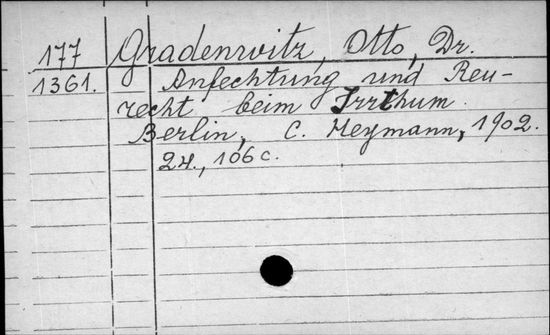 177 Gradenwitz, Otto, Dr.
1361. Anfechtung und Reu-
recht beim Irrthum.
Berlin, C. Heymann, 1902.
24., 106 c.